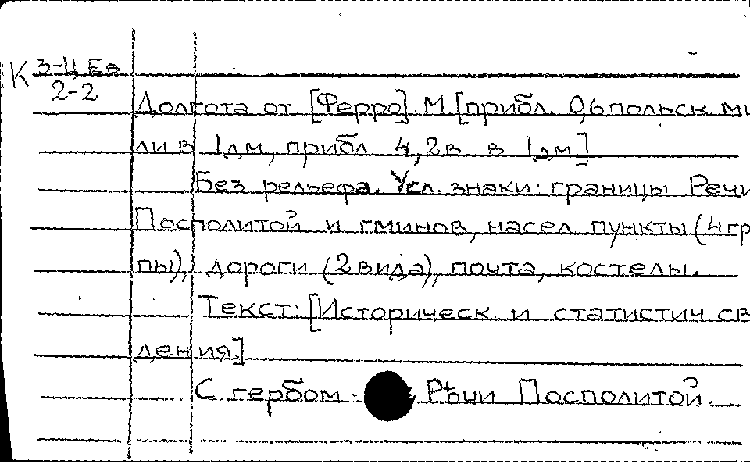 К 3-Ц.Ев
2-2
Долгота от [Ферро]. М.[прибл. 0,6 польск. ми
ли в 1дм, прибл 4,2в. в 1дм]
Без рельефа. Усл. знаки: границы Речи
Посполитой и гминов, насел. пункты (4 гр
пы), дороги (2 вида), почта, костелы.
Текст: [Историческ. и статистич. св
дения.]
С гербом Рѣчи Посполитой.